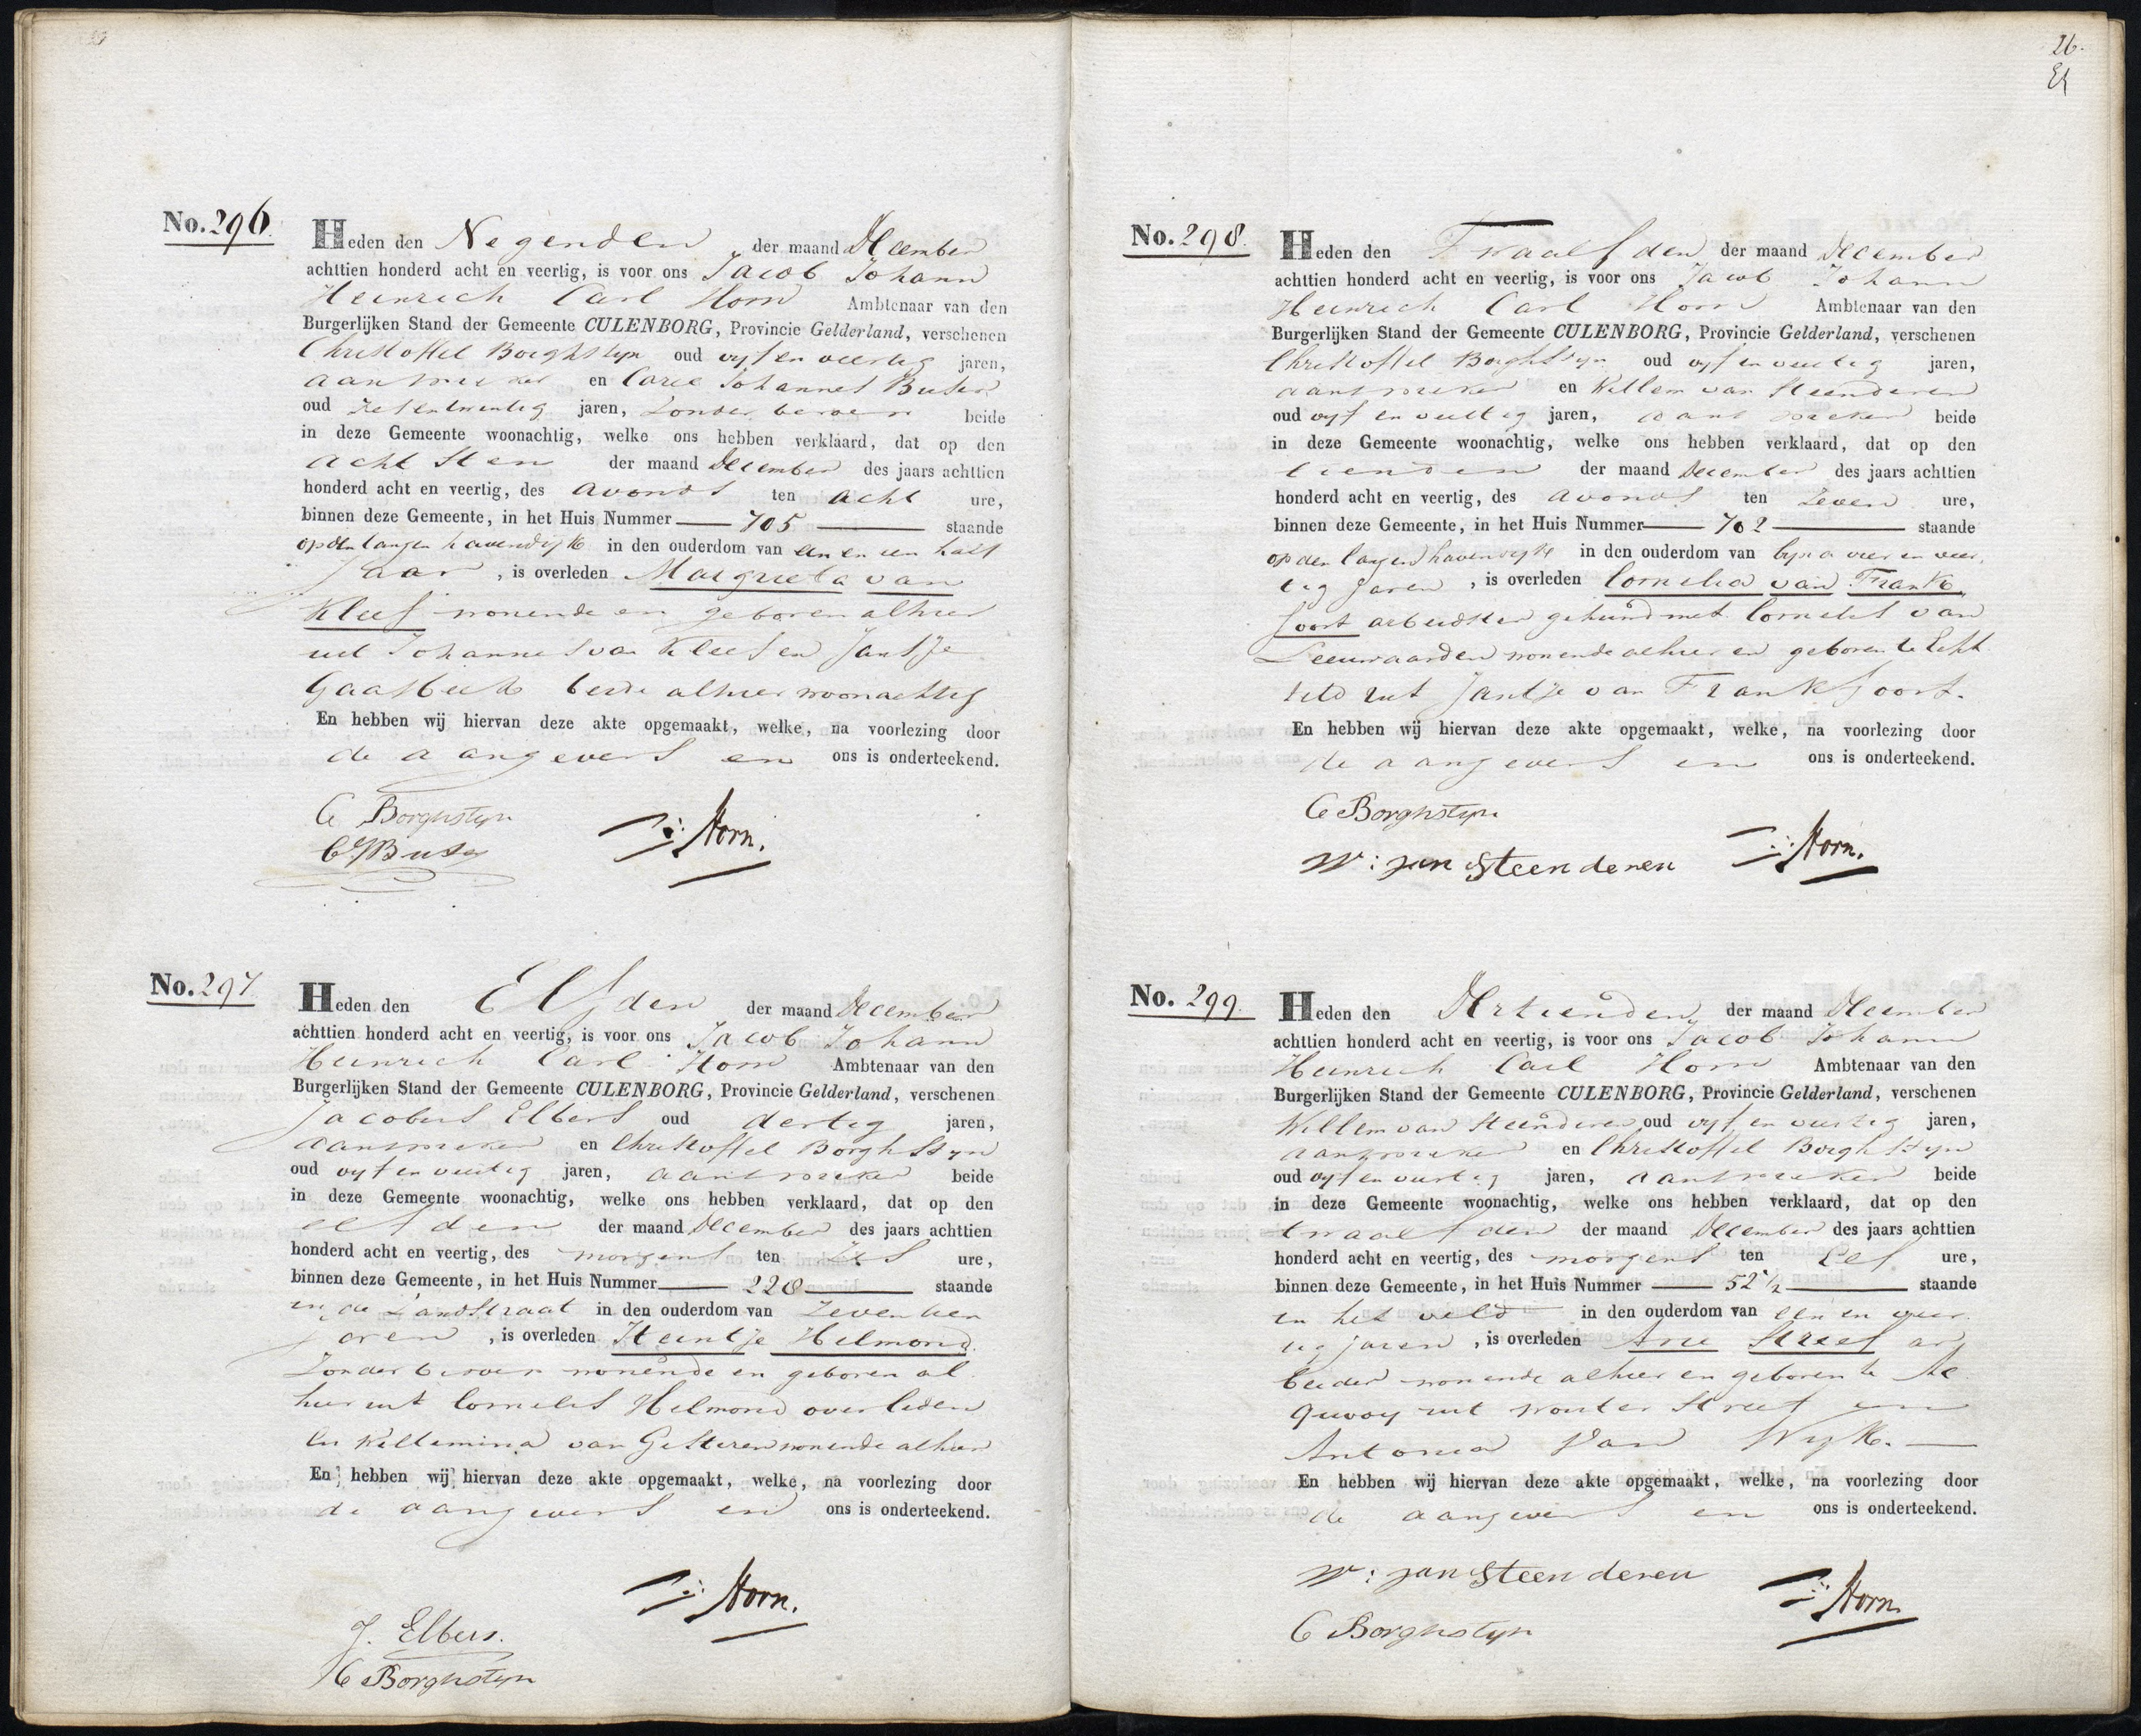 No. 296.
Heden den Negenden der maand December
achttien honderd acht en veertig, is voor ons Jacob Johann
Heinrich Carl Horn Ambtenaar van den
Burgerlijken Stand der Gemeente CULENBORG, Provincie Gelderland, verschenen
Christoffel Borghstijn oud vijf en veertig jaren,
aanspreker en Carel Johannes Buser
oud zes en twentig jaren, zonder beroep beide
in deze Gemeente woonachtig, welke ons hebben verklaard, dat op den
achtsten der maand December des jaars achttien
honderd acht en veertig, des avonds ten acht ure,
binnen deze Gemeente, in het Huis Nummer 705 staande
op den langen havendijk in den ouderdom van een en een half
Jaar, is overleden Margrieta van
Kleef wonende en geboren alhier
uit Johannes van Kleef en Jantje
Gaasbeek beide alhier woonachtig
En hebben wij hiervan deze akte opgemaakt, welke, na voorlezing door
de aangevers en ons is onderteekend.
C Borghstijn
Horn.
No. 297
Heden den Elfden der maand December
achttien honderd acht en veertig, is voor ons Jacob Johann
Heinrich Carl Horn Ambtenaar van den
Burgerlijken Stand der Gemeente CULENBORG, Provincie Gelderland, verschenen
Jacobus Elbers oud dertig jaren,
aanspreker en Christoffel Borghstijn
oud vijf en veertig jaren, aanspreker beide
in deze Gemeente woonachtig, welke ons hebben verklaard, dat op den
elfden der maand December des jaars achttien
honderd acht en veertig, des morgens ten zes ure,
binnen deze Gemeente, in het Huis Nummer 228 staande
in de Zandstraat in den ouderdom van zeventien
jaren, is overleden Heintje Helmond
zonder beroep wonende en geboren al
hier uit Cornelis Helmond overleden
en Willemina van wonende alhier
En hebben wij hiervan deze akte opgemaakt, welke, na voorlezing door
de aangevers en ons is onderteekend.
Horn.
J. Elbers.
C Borghstijn
26.
No. 298.
Heden den Twaalfden der maand December
achttien honderd acht en veertig, is voor ons Jacob Johann
Heinrich Carl Horn Ambtenaar van den
Burgerlijken Stand der Gemeente CULENBORG, Provincie Gelderland, verschenen
Christoffel Borghstijn oud vijf en veertig jaren,
aanspreker en Willem van Steenderen
oud vijf en veertig jaren, aanspreker beide
in deze Gemeente woonachtig, welke ons hebben verklaard, dat op den
tienden der maand December des jaars achttien
honderd acht en veertig, des avonds ten zeven ure,
binnen deze Gemeente, in het Huis Nummer 702 staande
op den langen havendijk in den ouderdom van bijna vier en veer
tig Jaren, is overleden Cornelia van Frank
foort arbeidster gehuwd met Cornelis van
Leeuwaarden wonende alhier en geboren te Echt
teld uit Jantje van Frankfoort.
En hebben wij hiervan deze akte opgemaakt, welke, na voorlezing door
de aangevers en ons is onderteekend.
C Borghstijn
W: van Steenderen
Horn.
No. 299.
Heden den Dertienden der maand December
achttien honderd acht en veertig, is voor ons Jacob Johann
Heinrich Carl Horn Ambtenaar van den
Burgerlijken Stand der Gemeente CULENBORG, Provincie Gelderland, verschenen
Willem van Steenderen oud vijf en veertig jaren,
aanspreker en Christoffel Borghstijn
oud vijf en veertig jaren, aanspreker beide
in deze Gemeente woonachtig, welke ons hebben verklaard, dat op den
twaalfden der maand December des jaars achttien
honderd acht en veertig, des morgens ten Elf ure,
binnen deze Gemeente, in het Huis Nummer 52 1/2 staande
in het veld in den ouderdom van een en veer
tig jaren, is overleden Arie Streef ar
beider wonende alhier en geboren te Ac
quooy uit Wouter Streef en
Antonia van Wijk.
En hebben wij hiervan deze akte opgemaakt, welke, na voorlezing door
de aangevers en ons is onderteekend.
W: van Steenderen
C Borghstijn
Horn